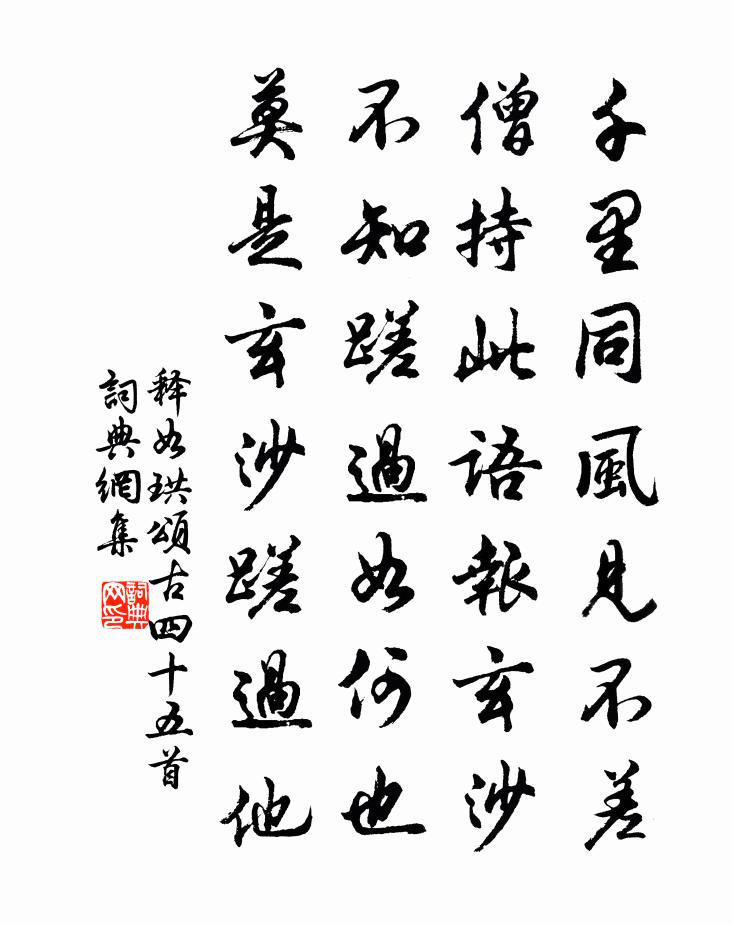 千里同風見不差
僧持此語報玄沙
不知蹉過如何也
莫是玄沙蹉過他
释如珙頌古四十五首
詞典網集
詞典网印